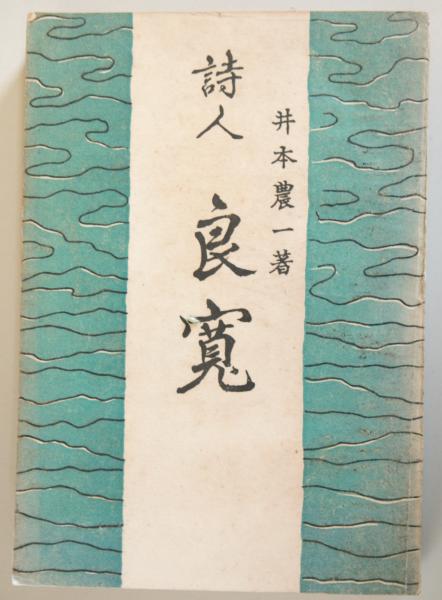 井本農一著
詩人 良寬